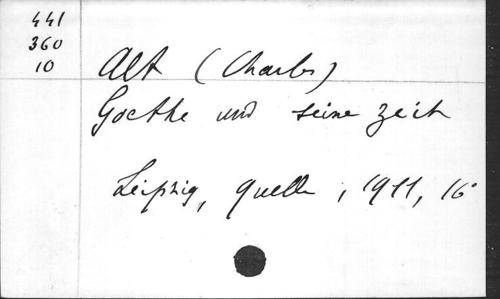 441
360
10
Alt (Charles)
Goethe und seine Zeit
Leipzig, Quelle, 1911, 16°